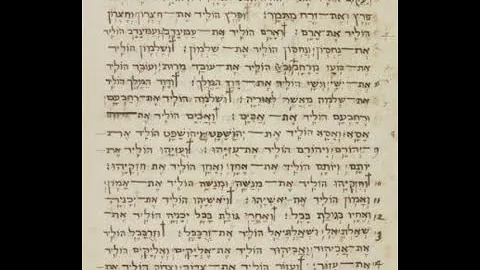 פרץ ואת־זרח מתמר׃ ופרץ הוליד את־חצרון וחצרון
הוליד את־ארם׃ וארם הוליד את־עמינדב ועמינדב הוליד
את־נחשון ונחשון הוליד את־שלמון׃ ושלמון הוליד
את־בועז מרחב הוליד את־עובד מרות ועובד הוליד
את־ישי וישי הוליד את־דוד המלך׃ ודוד המלך הוליד
את־שלמה מאשר לאוריה׃ ושלמה הוליד את־רחבעם
ורחבעם הוליד את־אבים׃ ואבים הוליד את־
אסא ואסא הוליד את־יהושפט ויהושפט הוליד את־
יהורם ויהורם הוליד את־עזיהו׃ ועזיהו הוליד את־ 9
יותם ויותם הוליד את־אחז ואחז הוליד את־חזקיהו׃
וחזקיהו הוליד את־מנשה ומנשה הוליד את־אמון 10
ואמון הוליד את־יאשיהו׃ ויאשיהו הוליד את־יכניה 11
ואחיו בגולת בבל׃ ואחרי גולת בבל יכניה הוליד את־ 12
שאלתיאל ושאלתיאל הוליד את־זרבבל׃ וזרבבל הוליד 13
את־אביהוד ואביהוד הוליד את־אליקים ואליקים הוליד
את־עזור׃ ועזור הוליד את־צדוק וצדוק הוליד את־ 14